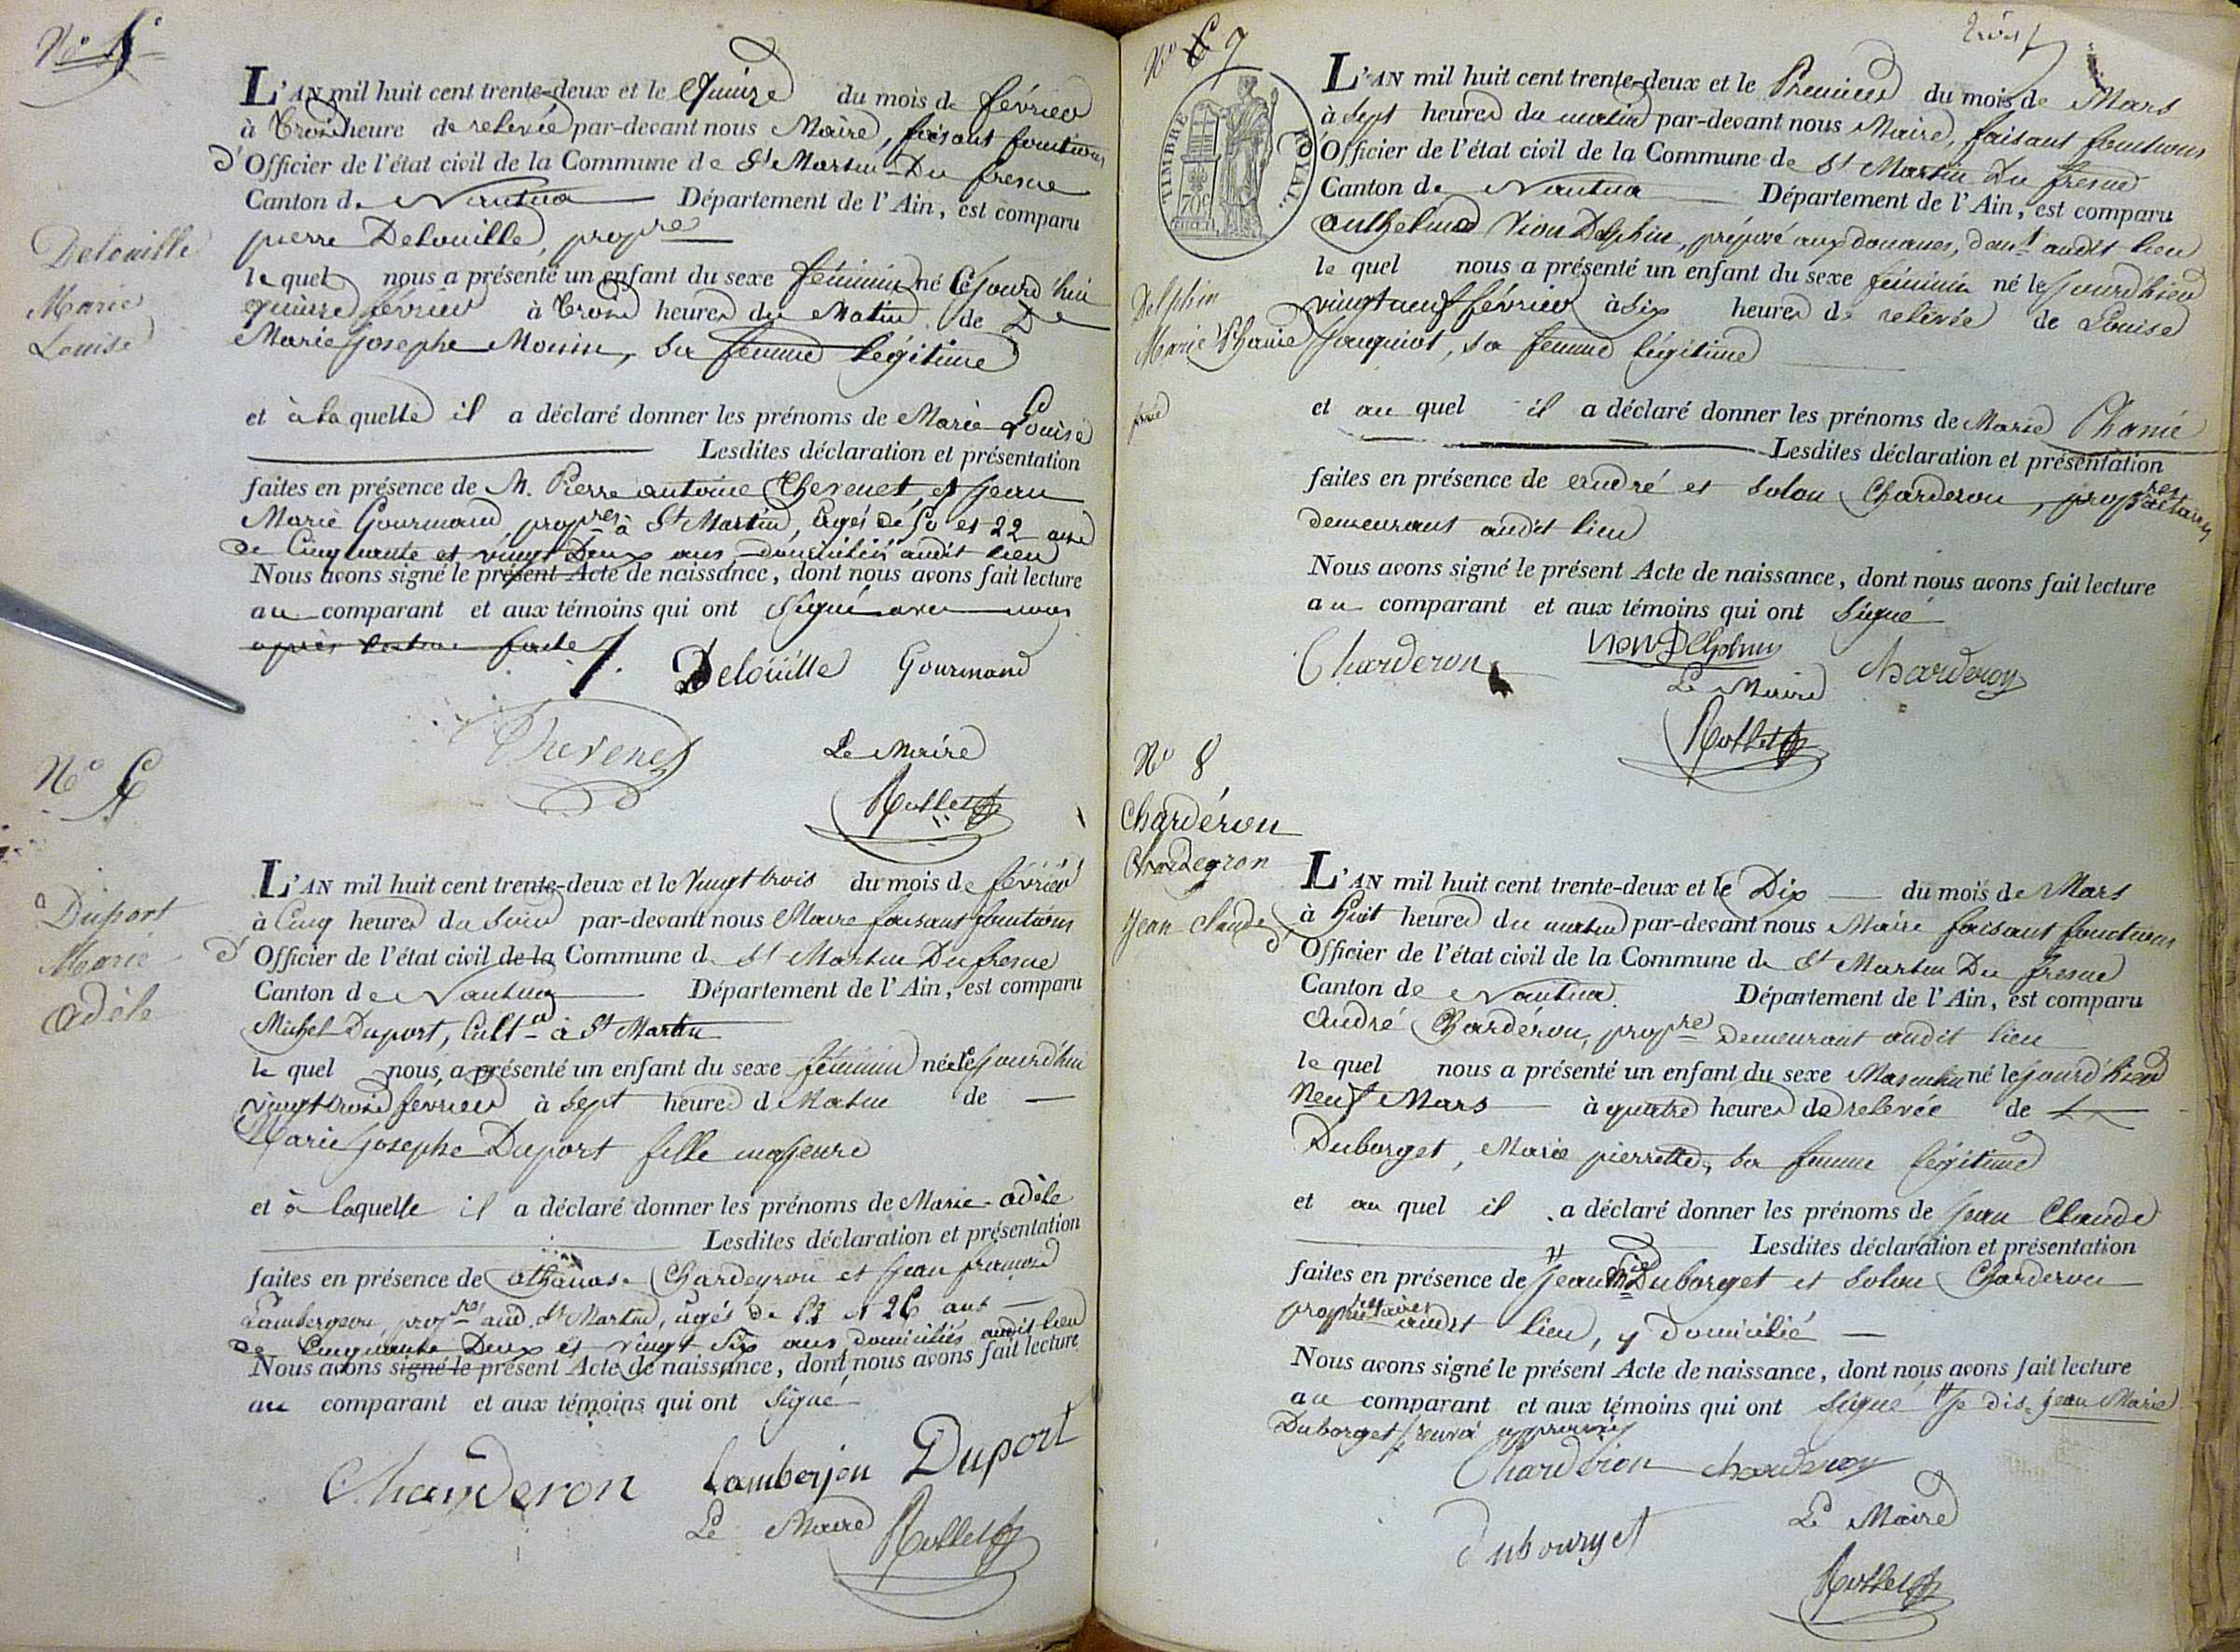 N° 5
L'AN mil huit cent trente-deux et le Quinze du mois de février
à Trois heure de relevée par-devant nous Maire, faisant fonctions
d'Officier de l'état civil de la Commune de St Martin Du fresne
Canton de Nantua Département de l'Ain, est comparu
pierre Delouille, propre
Delouille
Marie
Louise
le quel nous a présenté un enfant du sexe féminin né Cejourd'hui
quinze février à Trois heures du Matin de
Marie Josephe Monin, sa femme légitime
et à la quelle il a déclaré donner les prénoms de Marie Louise
Lesdites déclaration et présentation
faites en présence de M. Pierre antoine Chevenet, et Jean
Marie Gourmand propres à St Martin, âgés de 50 et 22 ans
de Cinquante et vingt Deux ans domiciliés audit lieu
Nous avons signé le présent Acte de naissance, dont nous avons fait lecture
au comparant et aux témoins qui ont Signé avec nous
après lecture faite
Deloüille Gourmand
Chevenet
Le Maire
Rollet
N° 6
L'AN mil huit cent trente-deux et le Vingt trois du mois de février
à Cinq heures du soir par-devant nous Maire faisant fonctions
d'Officier de l'état civil de la Commune d St Martin Du fresne
Canton de Nantua Département de l'Ain, est comparu
Michel Duport, Cultr à St Martin
Duport
Marie
Adèle
le quel nous a présenté un enfant du sexe féminin née Cejourd'hui
vingt trois février à Sept heures d Matin de
Marie Josephe Duport fille majeure
et à laquelle il a déclaré donner les prénoms de Marie-Adèle
Lesdites déclaration et présentation
faites en présence de Athanase Chardeyron et Jean françois
Lambergeon, propres aud. St Martin, âgés de 52 et 26 ans
de Cinquante Deux et vingt Six ans domiciliés audit lieu
Nous avons signé le présent Acte de naissance, dont nous avons fait lecture
au comparant et aux témoins qui ont Signé
Charderon Lamberjon Duport
Le Maire Rollet
N° 6 7
TIMBRE ROYAL
70c
L'AN mil huit cent trente-deux et le Premier du mois de Mars
à Sept heures du matin par-devant nous Maire, faisant fonctions
d'Officier de l'état civil de la Commune de St Martin Du fresne
Canton de Nantua Département de l'Ain, est comparu
Anthelme Vion Delphin, préposé aux douanes, demt audit lieu
Delphin
Marie Phanie
le quel nous a présenté un enfant du sexe féminin né lejourd'hier
vingt neuf février à Six heures de relevée de Louise
Jaquiot, sa femme légitime
et au quel il a déclaré donner les prénoms de Marie Phanie
Lesdites déclaration et présentation
faites en présence de André et Solon Charderon, propriétaires
demeurants audit lieu
Nous avons signé le présent Acte de naissance, dont nous avons fait lecture
au comparant et aux témoins qui ont Signé
Charderon Vion Delphin Charderon
Le Maire
Rollet
N° 8
Chardéron
Chardeyron
Jean Claude
L'AN mil huit cent trente-deux et le Dix du mois de Mars
à Huit heures du matin par-devant nous Maire faisant fonctions
d'Officier de l'état civil de la Commune de St Martin Du fresne
Canton de Nantua Département de l'Ain, est comparu
André Chardéron, propre demeurant audit lieu
le quel nous a présenté un enfant du sexe Masculin né lejourd'hier
Neuf Mars à quatre heures de relevée de
Duborget, Marie pierrette, sa femme légitime
et au quel il a déclaré donner les prénoms de Jean Claude
Lesdites déclaration et présentation
faites en présence de Jean Mie Duborget et Solon Charderon
propriétaires audit lieu, y domicilié
Nous avons signé le présent Acte de naissance, dont nous avons fait lecture
au comparant et aux témoins qui ont Signé je dis Jean Marie
Duborget, renvoi approuvé
Chardéron Charderon
Dubourget
Le Maire
Rollet